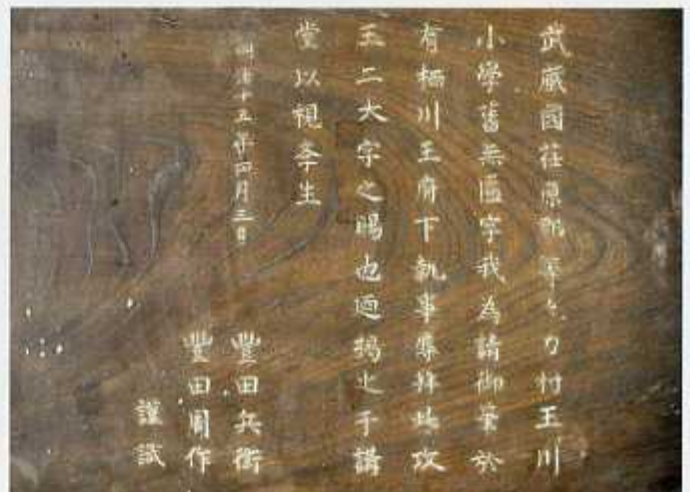 武蔵國荏原郡等々力村玉川
小學舊無匾字我為請御筆於
有栖川王府下執事拜其攻
玉二大字之賜也迺揭之于講
堂以視生
明治十五年四月三日
豐田兵衛
豐田周作
謹識